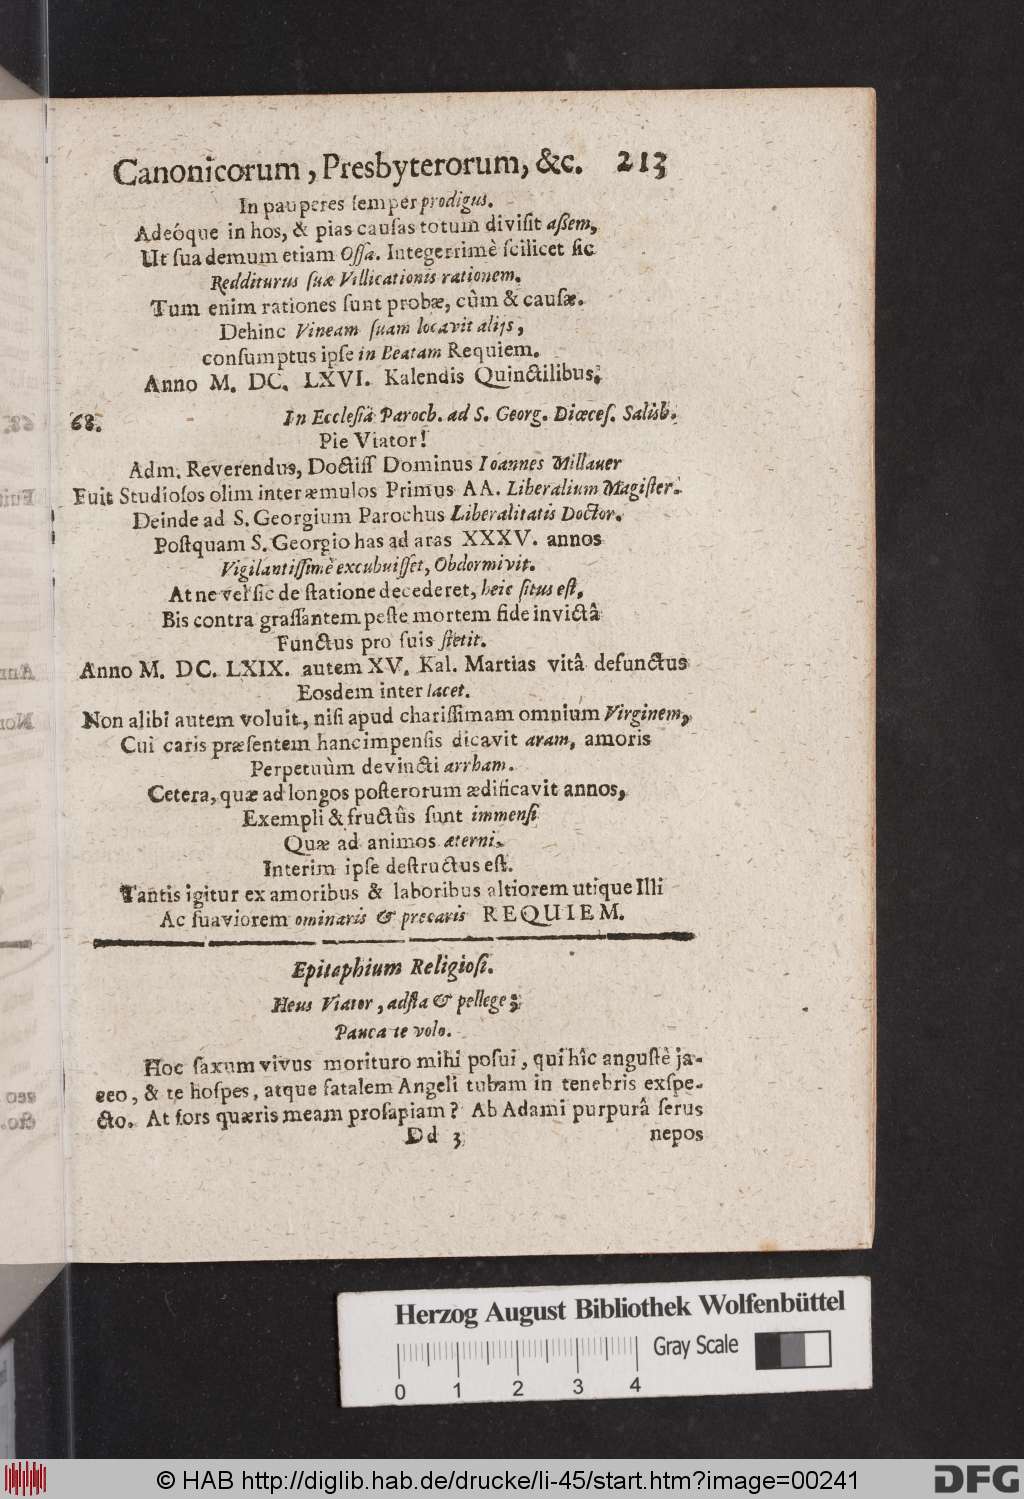 Canonicorum, Presbyterorum, &c. 213
In pauperes ſemper prodigus.
Adeóque in hos, & pias cauſas totum diviſit aßem,
Ut ſua demum etiam Oſſa. Integerrimè ſcilicet ſic
Redditurus ſuæ Villicationis rationem.
Tum enim rationes ſunt probæ, cùm & cauſæ.
Dehinc Vineam ſuam locavit alijs,
conſumptus ipſe in Beatam Requiem.
Anno M. DC. LXVI. Kalendis Quinctilibus.
68. In Eccleſiâ Paroch. ad S. Georg. Diœceſ. Salisb.
Pie Viator!
Adm. Reverendus, Doctiſſ Dominus Ioannes Millauer
Fuit Studioſos olim inter æmulos Primus AA. Liberalium Magiſter.
Deinde ad S. Georgium Parochus Liberalitatis Doctor.
Poſtquam S. Georgio has ad aras XXXV. annos
Vigilantiſſimè excubuiſſet, Obdormivit.
At ne vel ſic de ſtatione decederet, heic ſitus eſt,
Bis contra graſſantem peſte mortem fide invictâ
Functus pro ſuis ſtetit.
Anno M. DC. LXIX. autem XV. Kal. Martias vitâ defunctus
Eosdem inter Iacet.
Non alibi autem voluit, niſi apud chariſſimam omnium Virginem,
Cui caris præſentem hanc impenſis dicavit aram, amoris
Perpetuùm devincti arrham.
Cetera, quæ ad longos poſterorum ædificavit annos,
Exempli & fructûs ſunt immenſi
Quæ ad animos æterni.
Interim ipſe deſtructus eſt.
Tantis igitur ex amoribus & laboribus altiorem utique Illi
Ac ſuaviorem ominaris & precaris REQUIEM.
Epitaphium Religioſi.
Heus Viator, adſta & pellege;
Pauca te volo.
Hoc ſaxum vivus morituro mihi poſui, qui hîc anguſtè ja-
ceo, & te hoſpes, atque fatalem Angeli tubam in tenebris exſpe-
cto. At fors quæris meam proſapiam? Ab Adami purpurâ ſerus
Dd 3 nepos
Herzog August Bibliothek Wolfenbüttel
Gray Scale
0 1 2 3 4
© HAB http://diglib.hab.de/drucke/li-45/start.htm?image=00241
DFG